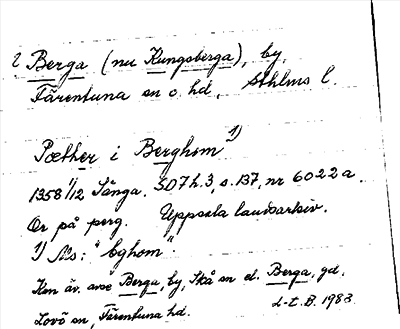 ? Berga (nu Kungsberga), by,
Färentuna sn o. hd, Sthlms l.
Pæther i Berghom 1)
1358 1/12 Sånga. SD7 h.3, s. 137, nr 6022 a.
Or på perg. Uppsala landsarkiv.
1) Ms: "bghom".
Kan äv. avse Berga, by, Skå sn el. Berga, gd,
Lovö sn, Färentuna hd. L-t. B. 1983